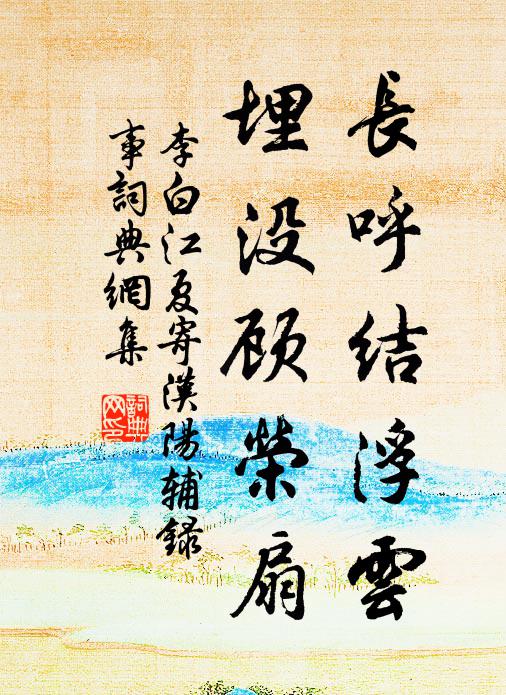 長呼結浮雲
埋没顾榮扇
李白江夏寄漢陽辅録
事詞典網集
詞典網印